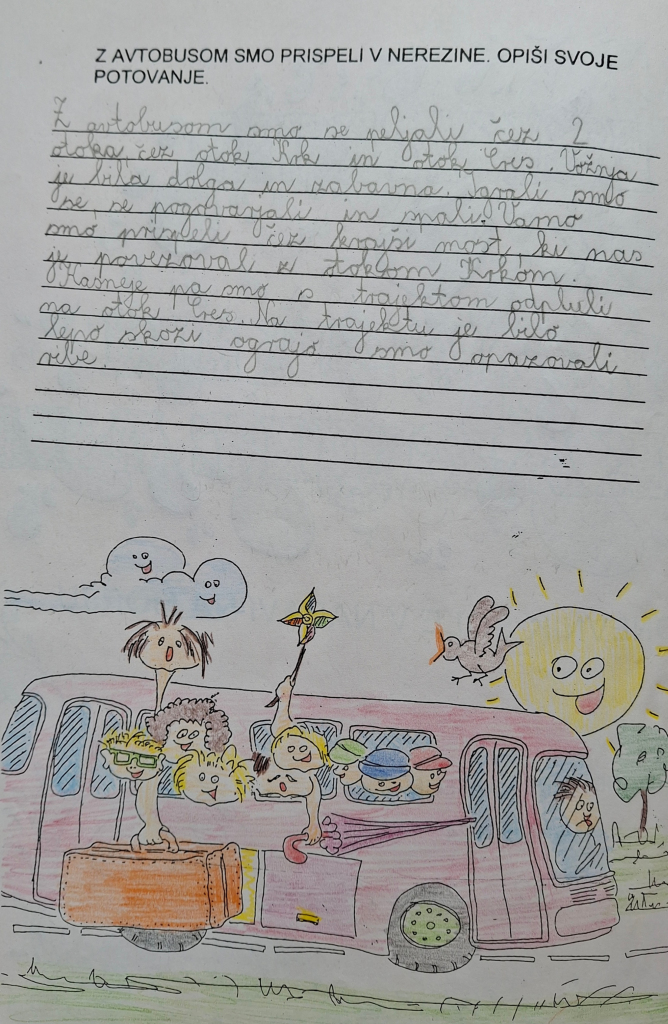 Z AVTOBUSOM SMO PRISPELI V NEREZINE. OPIŠI SVOJE
POTOVANJE.
Z avtobusom smo se peljali čez 2
otoka, čez otok Krk in otok Cres. Vožnja
je bila dolga in zabavna. Igrali smo
se, se pogovarjali in spali. Vamo
smo prispeli čez krajši most, ki nas
je povezoval z otokom Krkom.
Kasneje pa smo s trajektom odpluli
na otok Cres. Na trajektu je bilo
lepo skozi ograjo smo opazovali
ribe.